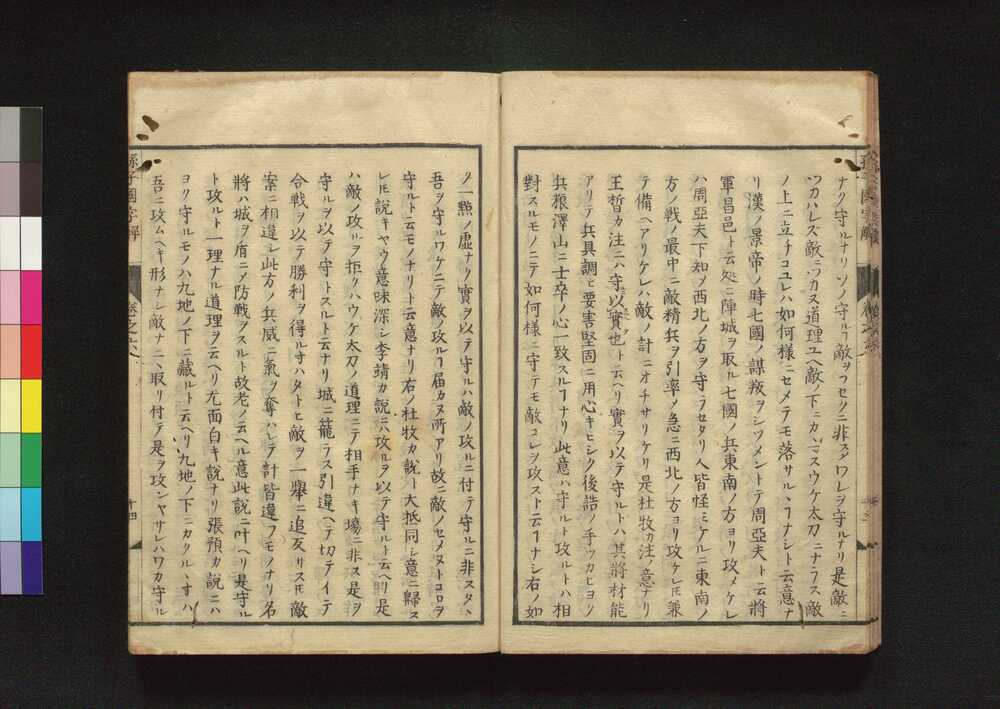 ナク守ルナリソノ守ルヿ敵ヲフセクニ非ス。ワレヲ守ルナリ是敵ニ
ツカハレズ敵ニツカヌ道理ユヘ敵ノ下ニカヽマスウケ太刀ニナラス敵
ノ上ニ立チコユレハ如何様ニセメテモ落サルヽヿナシト云意ナ
リ漢ノ景帝ノ時七國ノ謀叛ヲシツメントテ周亞夫ト云將
軍昌邑ト云処ニ陣城ヲ取ル七國ノ兵東南ノ方ヨリ攻メケレ
ハ周亞夫下知ノ西北ノ方ヲ守ラセタリ人皆怪ミケルニ東南ノ
方ノ戰ノ最中ニ敵精兵ヲ引率ノ急ニ西北ノ方ヨリ攻ケレ𪜈兼
テ備ヘアリケレハ敵ノ計ニオチサリケリ是杜牧カ注ノ意ナリ
王晳カ注ニハ守以實也ト云ヘリ實ヲ以テ守ルトハ其將材能
アリテ兵具調ヒ要害堅固ニ用心キヒシク後詰ノ手ツカヒヨク
兵粮澤山ニ士卒ノ心一致スルヿナリ此意ハ守ルト攻ルトハ相
對スルモノニテ如何様ニ守テモ敵コレヲ攻ストト云ヿナシ右ノ如
ク一㸃ノ虚ナク實ヲ以テ守ルハ敵ノ攻ルニ付テ守ルニ非スタヽ
吾ヲ守ルワケニテ敵ノ攻ルヿ届カヌ所アリ故ニ敵ノセメヌトコロヲ
守ルト云モノナリト云意ナリ右ノ杜牧カ説ト大抵同シ意ニ歸ス
レ𪜈説キヤウ意味深シ李靖カ説ニハ攻ルヲ以テ守ルト云ヘリ是
ハ敵ノ攻ルヲ拒クハウケ太刀ノ道理ニテ相手ナキ場ニ非ス是ヲ
守ルヲ以テ守トスルト云ナリ城ニ籠ラス引違ヘテ切テイテ
合戰ヲ以テ勝利ヲ得ル寸ハタトヒ敵ヲ一擧ニ追反サス𪜈敵
案ニ相違シ此方ノ兵威ニ氣ヲ奪ハレテ計皆違フモノナリ名
將ハ城ヲ盾ニメ防戰ヲスルト故老ノ云ヘル意此説ニ叶ヘリ是守ル
ト攻ルト一理ナル道理ヲ云ヘリ尤面白キ説ナリ張預カ説ニハ
ヨク守ルモノハ九地ノ下ニ藏ルト云ヘリ九地ノ下ニカクルヽ寸ハ
吾ニ攻ムヘキ形ナシ敵ナニヽ取リ付テ是ヲ攻ンヤサレハワカ守ル
孫子國字解
卷之六
十四